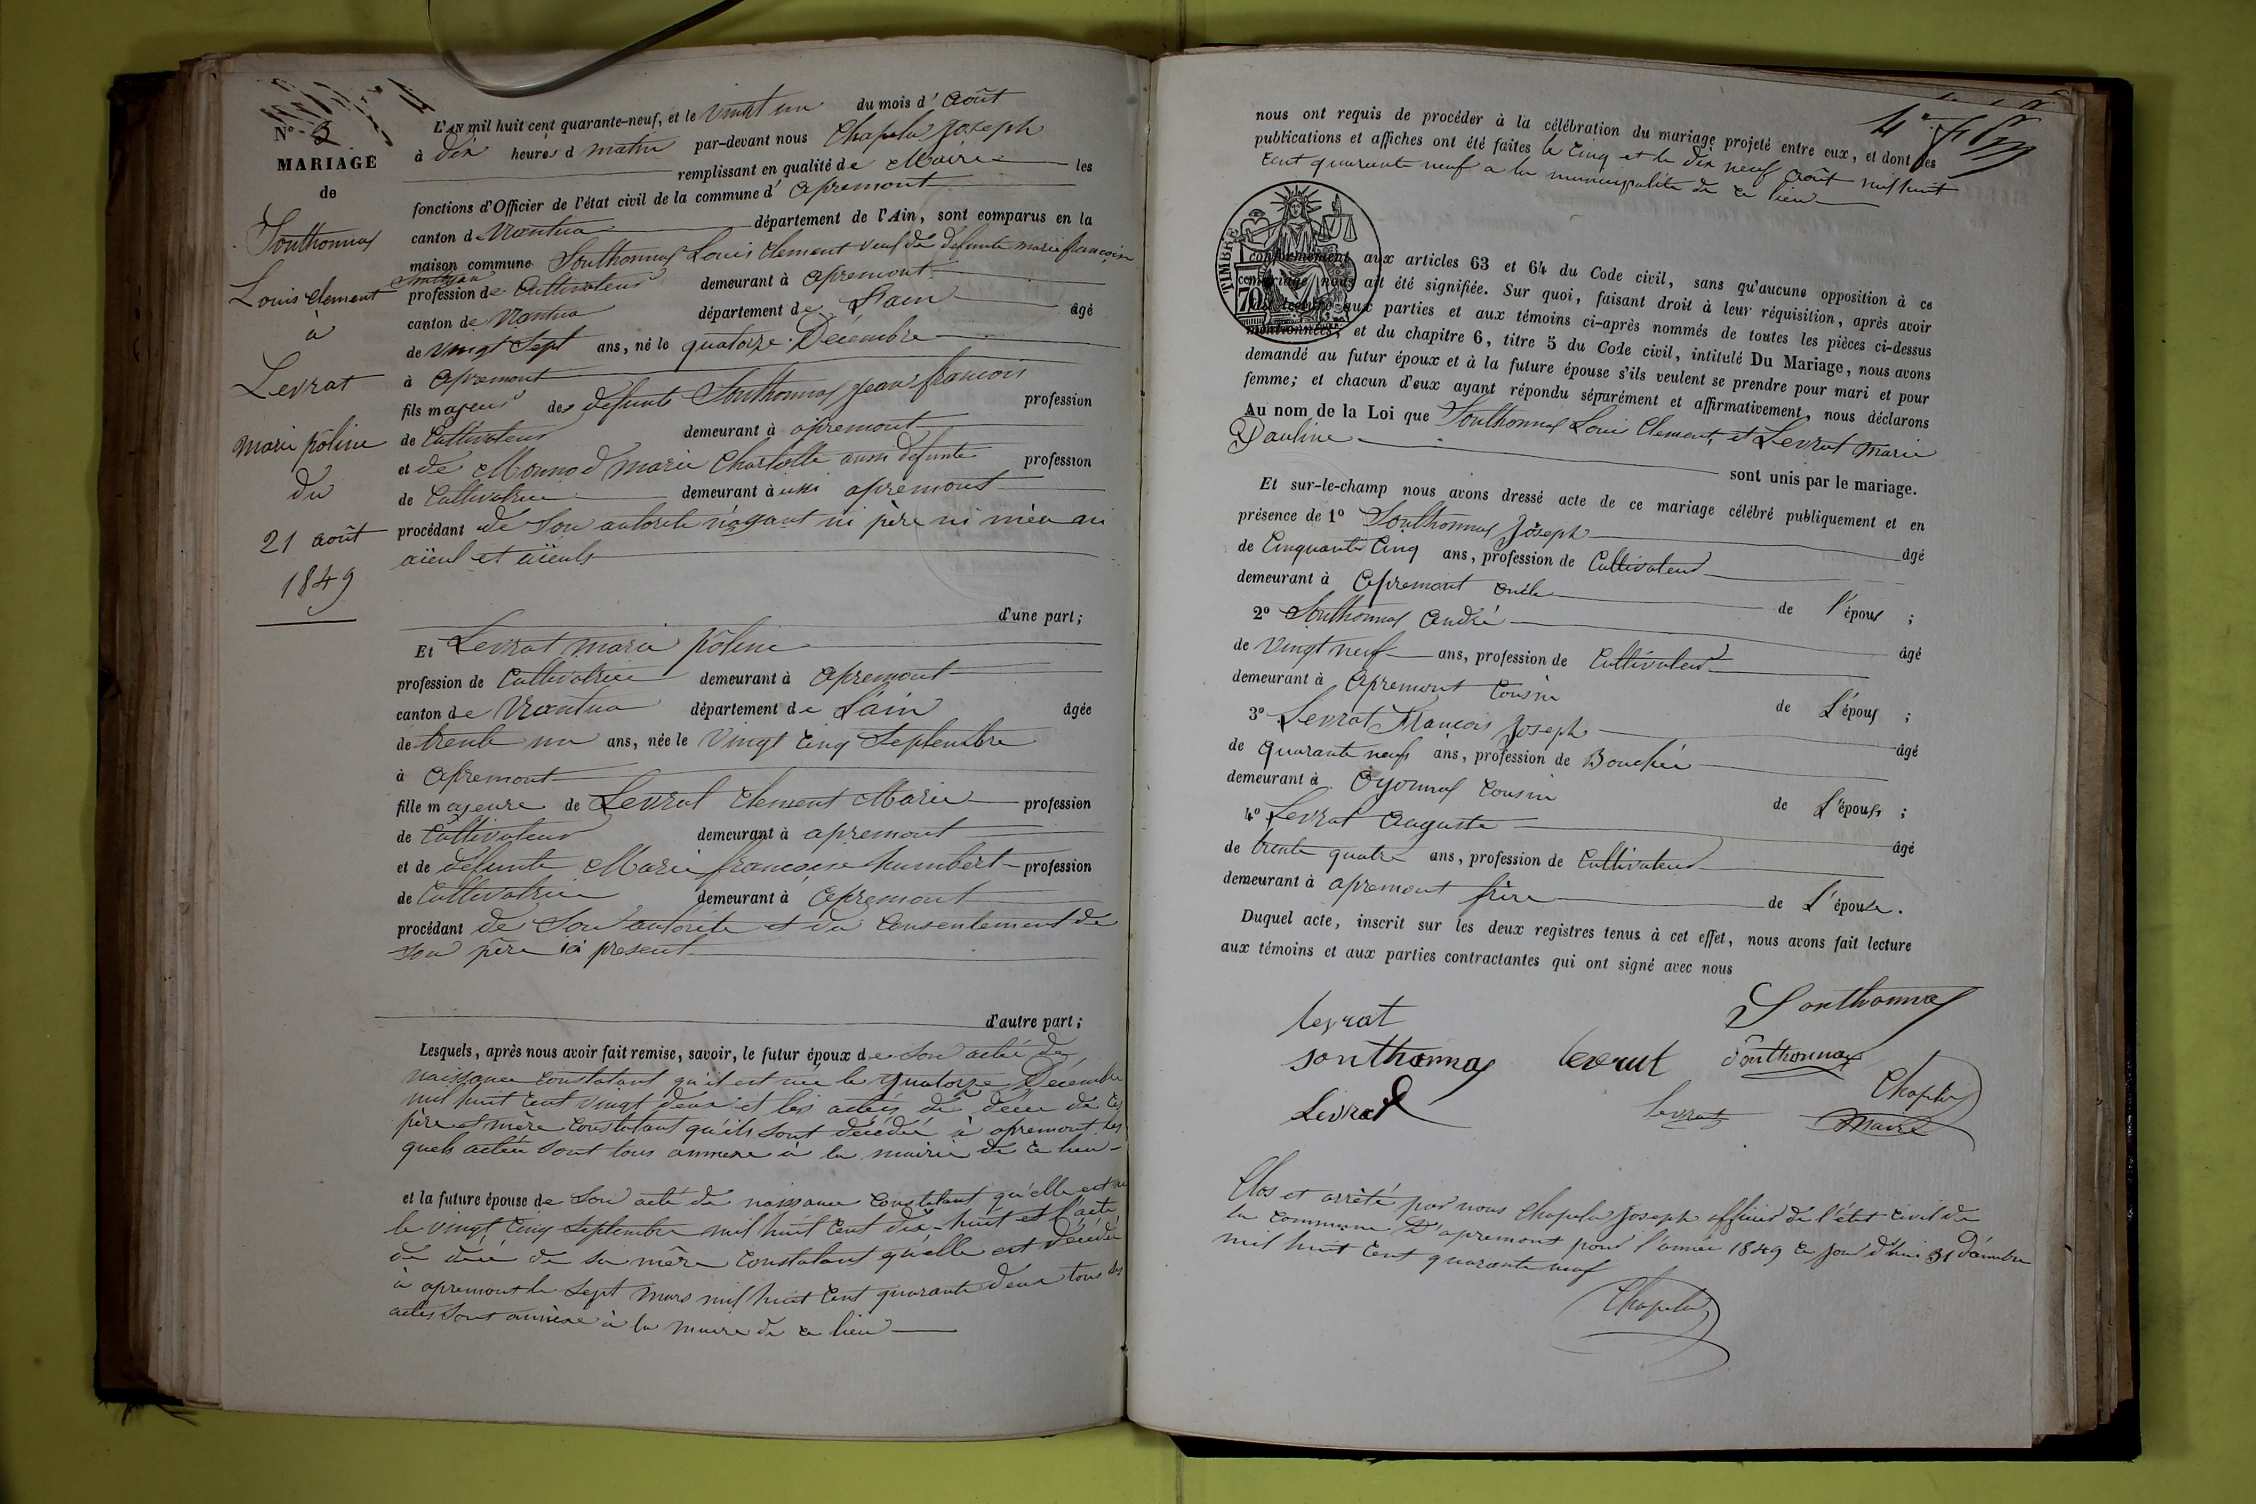 N.º 3
MARIAGE
de
Sonthonnax
Louis Clement
à
Levrat
Marie poline
du
21 août
1849
L'AN mil huit cent quarante-neuf, et le vingt un du mois d'août
à dix heures d matin par-devant nous Chapelu Joseph
remplissant en qualité de Maire les
fonctions d'Officier de l'état civil de la commune d'apremont
canton de Nantua département de l'Ain, sont comparus en la
maison commune Sonthonnax Louis Clement veuf de defunte marie françoise
profession de Cultivateur demeurant à apremont
canton de Nantua département de L'ain âgé
de vingt Sept ans, né le quatorze Décembre
à apremont
fils majeur des defunts Sonthonnax jean françois profession
de Cultivateur demeurant à apremont
et de Monnod marie Charlotte aussi defunte profession
de Cultivatrice demeurant à apremont
procédant de Son autorité n'ayant ni père ni mère ni
aïeul et aïeuls
d'une part;
Et Levrat marie pôline
profession de Cultivatrice demeurant à apremont
canton de Nantua département de L'ain âgée
de trente un ans, née le vingt Cinq Septembre
à apremont
fille majeure de Levrat Clement Marie profession
de Cultivateur demeurant à apremont
et de defunte Marie françoise humbert profession
de Cultivatrice demeurant à apremont
procédant de Son autorité et du Consentement de
son père ici present
d'autre part;
Lesquels, après nous avoir fait remise, savoir, le futur époux de son acte de
naissance constatant qu'il est né le quatorze Décembre
mil huit Cent vingt deux et les actes de déce de ces
père et mère constatant qu'ils sont décédé à apremont les
quels actes sont tous annexé à la mairie de ce lieu
et la future épouse de Son acte de naissance Constatant qu'elle est né
le vingt Cinq Septembre mil huit Cent dix-huit et l'acte
de déce de sa mère constatant qu'elle est décédé
à apremont le Sept mars mil huit Cent quarante deux tous les
actes sont annexé à la mairie de ce lieu
nous ont requis de procéder à la célébration du mariage projeté entre eux, et dont les
publications et affiches ont été faites le Cinq et le dix neuf août mil huit
Cent quarante neuf a la municipalité de ce lieu
TIMBRE
70
conformément aux articles 63 et 64 du Code civil, sans qu'aucune opposition à ce
mariage nous ait été signifiée. Sur quoi, faisant droit à leur réquisition, après avoir
aux parties et aux témoins ci-après nommés de toutes les pièces ci-dessus
mentionnées, et du chapitre 6, titre 5 du Code civil, intitulé Du Mariage, nous avons
demandé au futur époux et à la future épouse s'ils veulent se prendre pour mari et pour
femme; et chacun d'eux ayant répondu séparément et affirmativement, nous déclarons
Au nom de la Loi que Sonthonnax Louis Clement, et Levrat Marie
Pauline
sont unis par le mariage.
Et sur-le-champ nous avons dressé acte de ce mariage célébré publiquement et en
présence de 1º Sonthonnax Joseph âgé
de Cinquante Cinq ans, profession de Cultivateur
demeurant à apremont oncle de l'époux ;
2º Sonthonnax André âgé
de vingt neuf ans, profession de Cultivateur
demeurant à apremont Cousin de L'époux ;
3º Levrat François Joseph âgé
de quarante neuf ans, profession de Bouché
demeurant à Oyonnax Cousin de L'épouse ;
4º Levrat Auguste âgé
de trente quatre ans, profession de Cultivateur
demeurant à apremont frère de L'épouse.
Duquel acte, inscrit sur les deux registres tenus à cet effet, nous avons fait lecture
aux témoins et aux parties contractantes qui ont signé avec nous
levrat Sonthonnax
sonthonnax levrat Sonthonnax
Levrat levrat Chapelu
Maire
Clos et arrêté par nous Chapelu Joseph officier de l'état Civil de
la commune D'apremont pour l'année 1849 Ce jour d'hui 31 Décembre
mil huit Cent quarante neuf
Chapelu